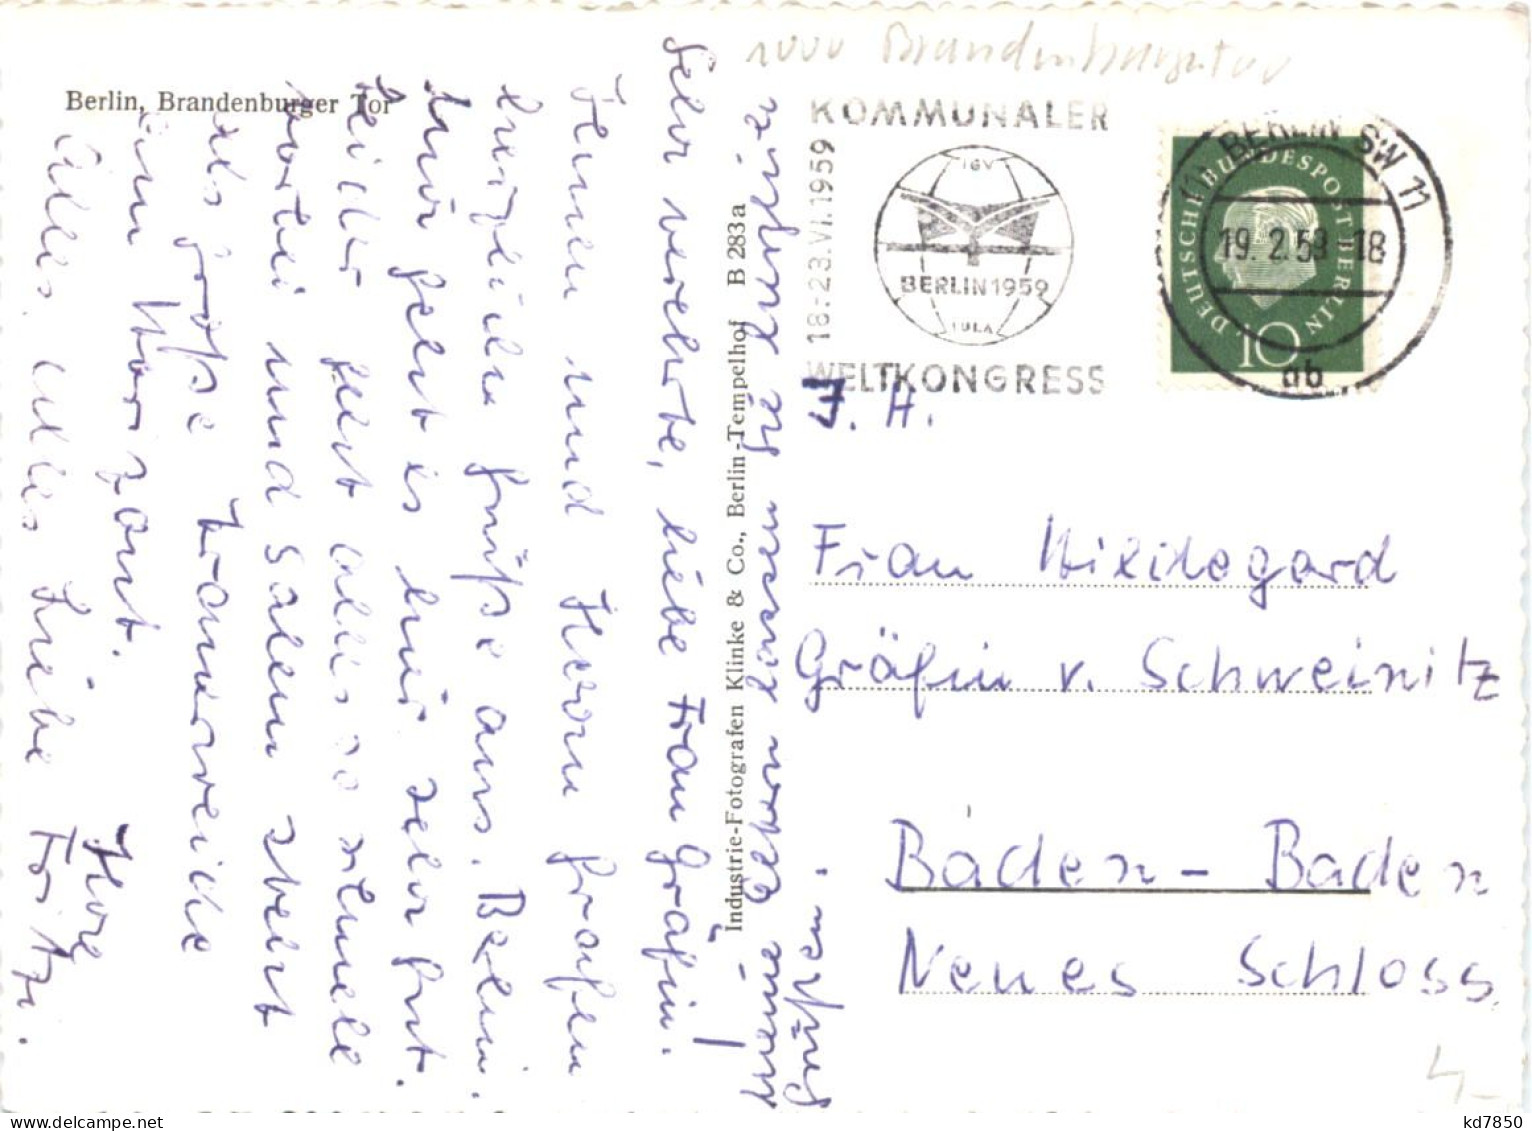 1000 Brandenburgertor
Berlin, Brandenburger Tor
KOMMUNALER
18.-23.VI.1959
IGV
BERLIN 1959
IULA
WELTKONGRESS
(1) BERLIN SW 11
19. 2. 59 18
ab
DEUTSCHE BUNDESPOST BERLIN
10
I. H.
Frau Hildegard
Gräfin v. Schweinitz
Baden-Baden
Neues Schloss
Industrie-Fotografen Klinke & Co., Berlin-Tempelhof B 283a
Sehr verehrte, liebe Frau Gräfin!
Ihnen und Herrn Grafen
herzliche Grüße aus Berlin.
Mir geht es hier sehr gut.
Leider geht alles so schnell
vorbei und Salem steht
als große Trauerweide
am Horizont.
Alles alles Liebe
Ihre
grüßen.
4,-
kd7850
www.delcampe.net